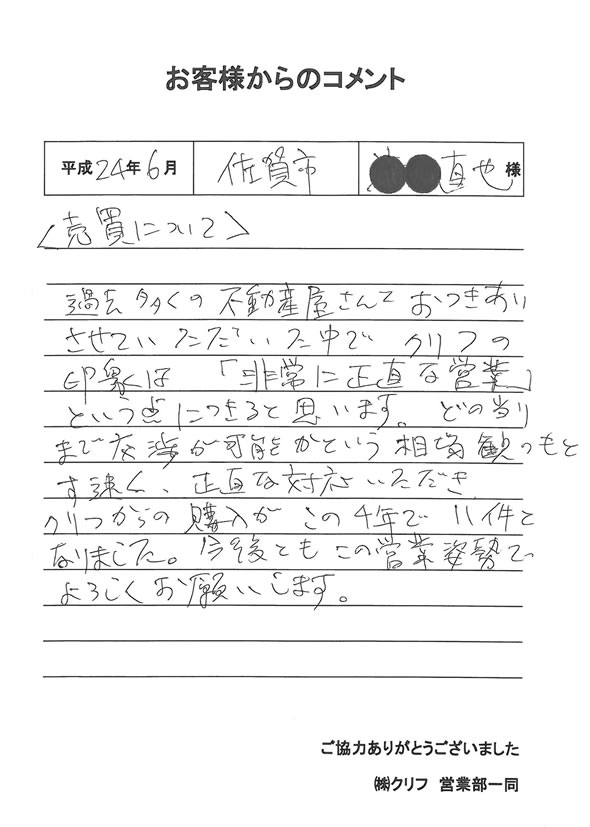 お客様からのコメント
平成24年6月 佐賀市 直也様
〈売買について〉
過去多くの不動産屋さんておつきあい
させていただいた中で クリフの
印象は「非常に正直な営業」
という点につきると思います。どの当り
まで交渉が可能かという相場観のもと
す速く、正直な対応いただき
クリフからの購入がこの4年で11件と
なりました。今後ともこの営業姿勢で
よろしくお願いします。
ご協力ありがとうございました
㈱クリフ 営業部一同